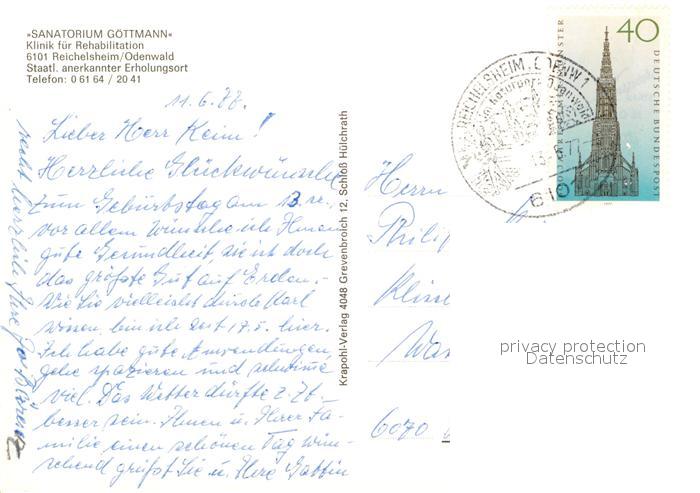 »SANATORIUM GÖTTMANN«
Klinik für Rehabilitation
6101 Reichelsheim/Odenwald
Staatl. anerkannter Erholungsort
Telefon: 0 61 64 / 20 41
11.6.77.
Lieber Herr Keim!
Herzliche Glückwünsche
zum Geburtstag am 13. cr.,
vor allem wünsche ich Ihnen
gute Gesundheit, sie ist doch
das größte Gut auf Erden.-
Wie Sie vielleicht durch Karl
wissen, bin ich seit 17.5. hier.
Ich habe gute Anwendungen,
gehe spazieren und schwimme
viel. Das Wetter dürfte z. Zt.
besser sein. Ihnen u. Ihrer Fa-
milie einen schönen Tag wün-
schend grüßt Sie u. Ihre Gattin
recht herzlich Ihre
Krapohl-Verlag 4048 Grevenbroich 12, Schloß Hülchrath
REICHELSHEIM, ODENW 1
610
40
DEUTSCHE BUNDESPOST
Herrn
Philip
6070
privacy protection
Datenschutz